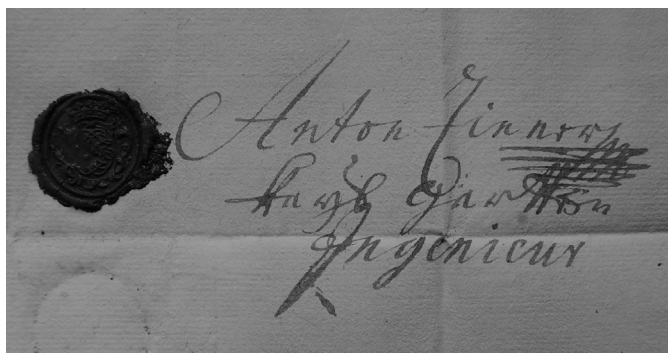 Anton Zinner
Kayß Gartten
Ingenieur